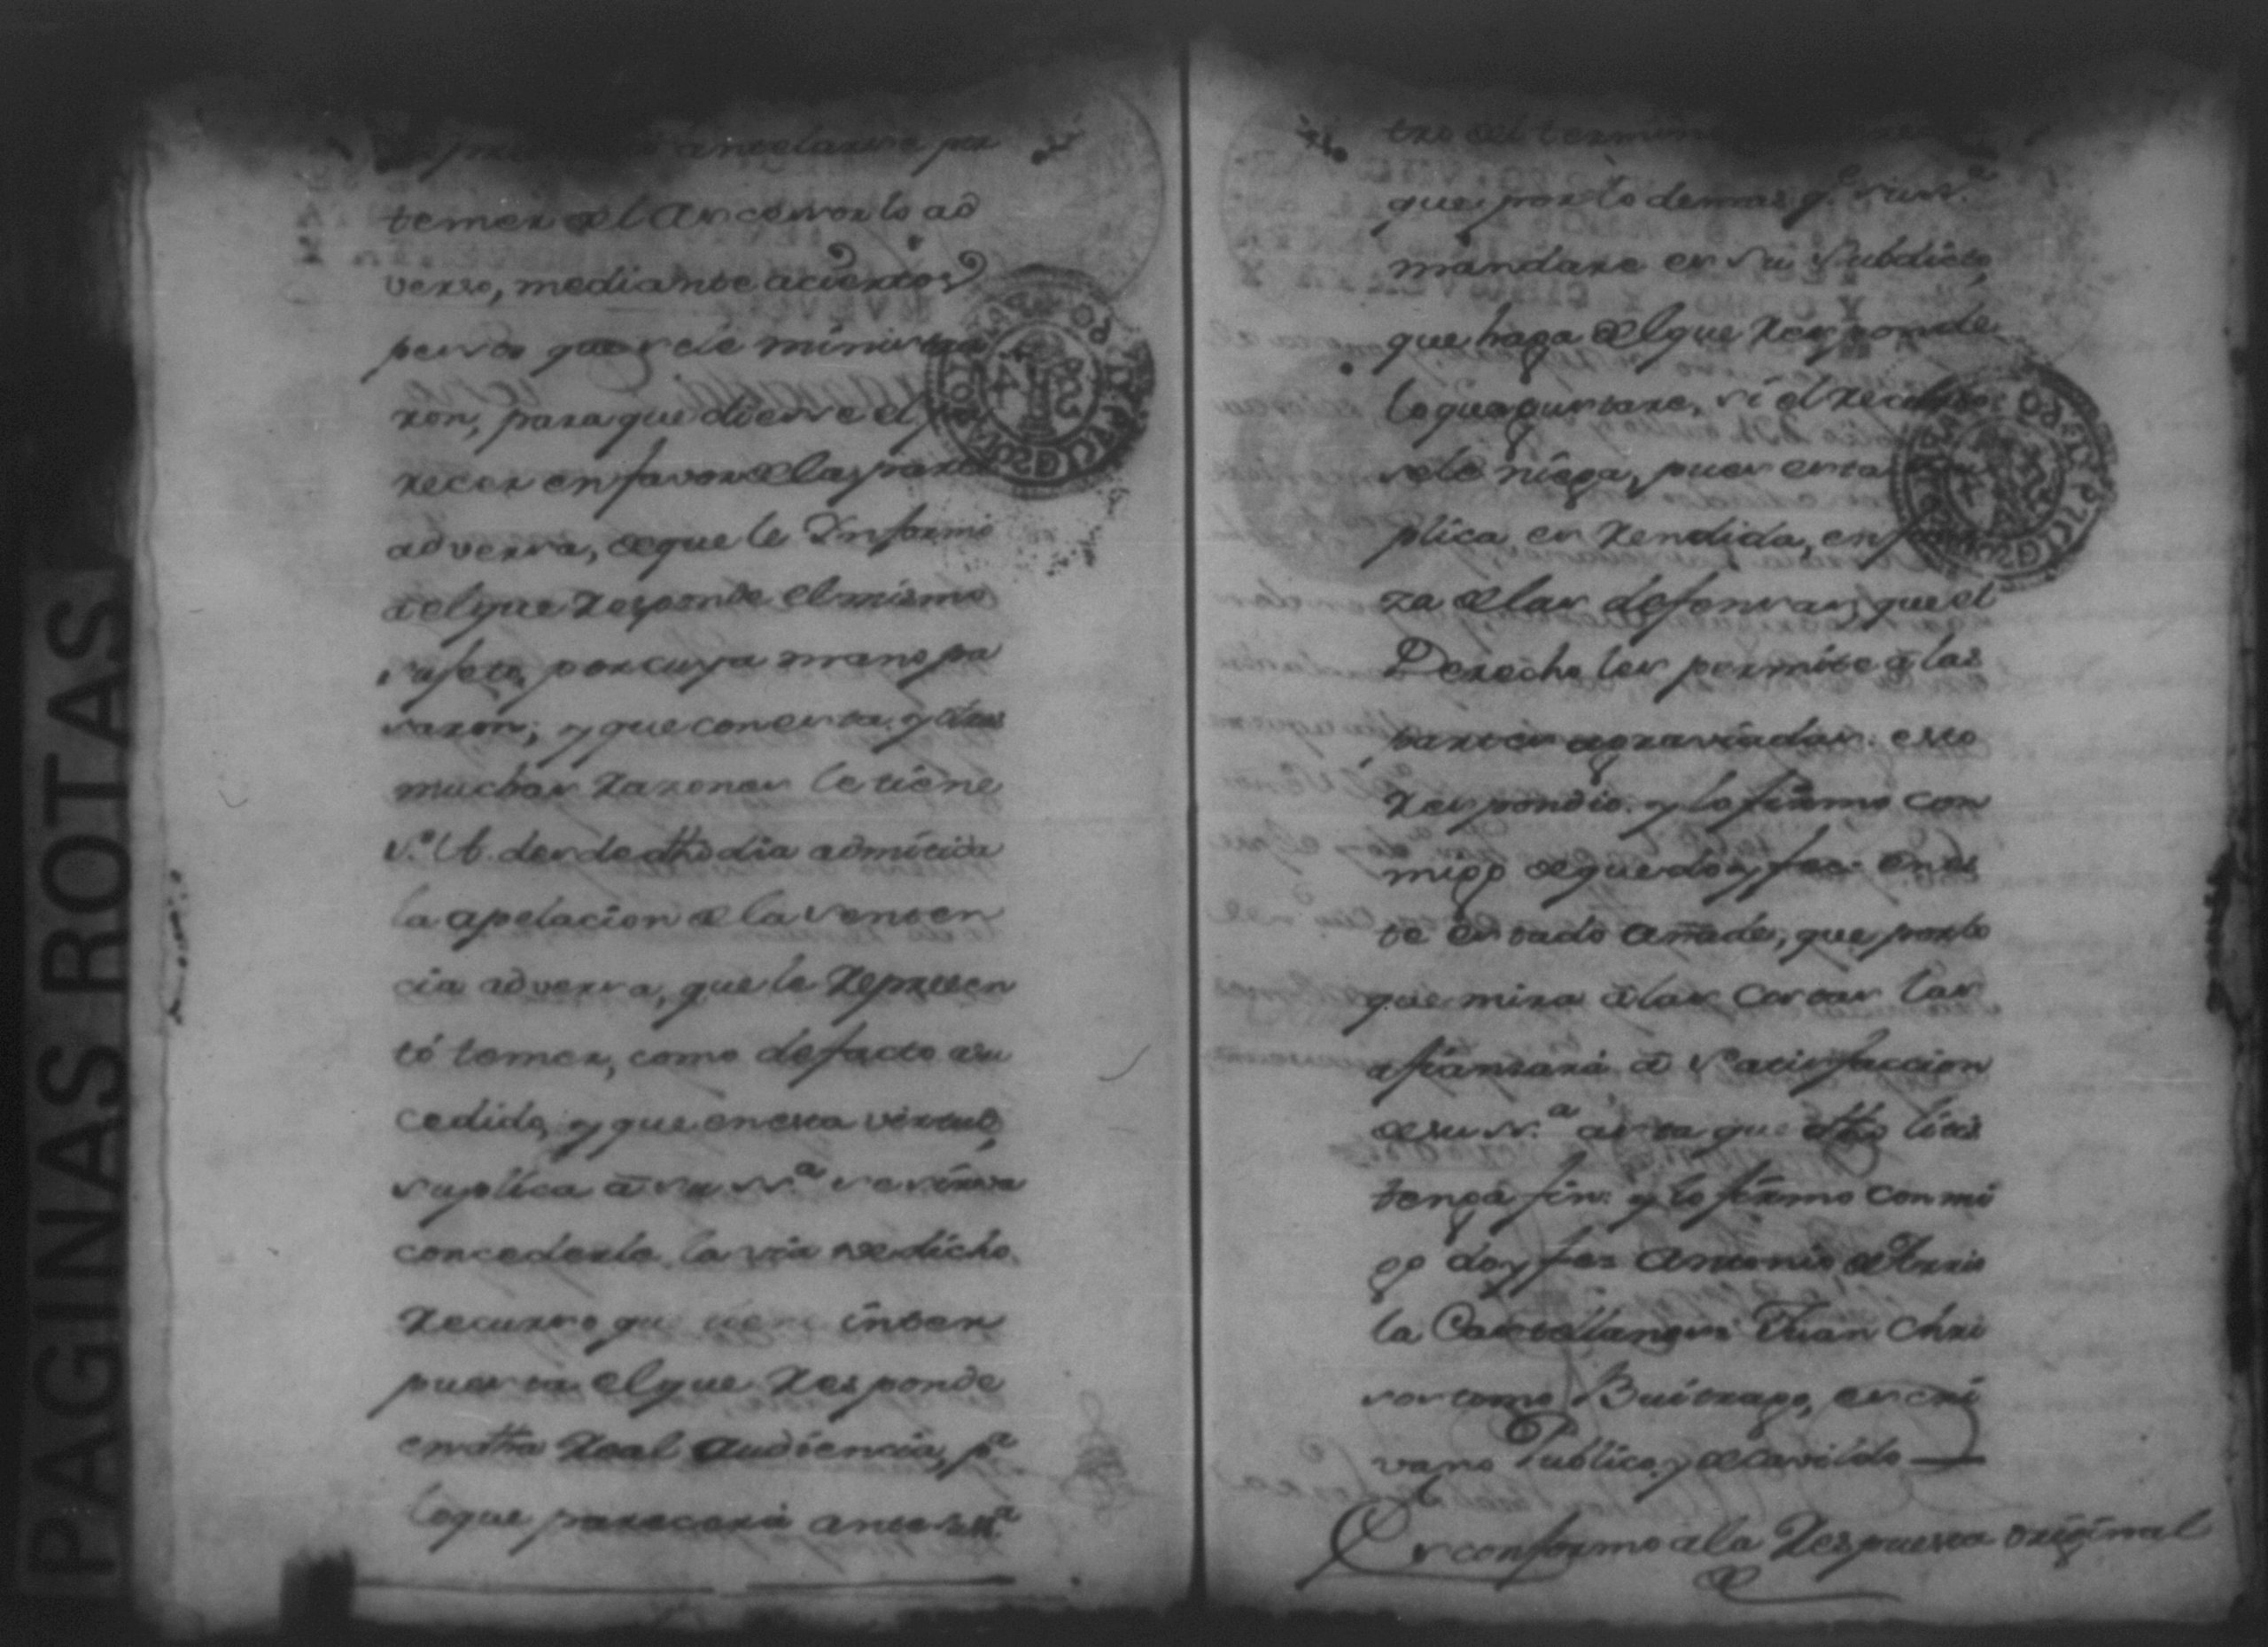 PAGINAS ROTAS
antelarse por
temer el Ascensorlo ad
verso, mediante aciertos
pesos que se le ministra
ron, para que diesse el pa
recer en favor de la parte
adversa, de que le Informó
a el que responde el mismo
sujeto, por cuya mano pa
saron; y que con esta y otras
muchas razones le tiene
Sª. A. desde dho dia admitida
la apelacion de la senten
cia adversa, que le represen
tó temer, como de facto asu
cedido, y que en esta virtud,
suplica â su ssª. se sirva
concederle la via de dicho
recurso que tiene inter
puesta el que responde
en dha Real Audiencia, pª
lo que parecerá ante su ssª
tro del termino
que por lo demas qe. su ssª.
mandare es su subdito,
que haga el que responde
lo que gustare, si el recurso
se le niega, pues esta su
plica es rendida, en fuer
za de las defensas, que el
Derecho les permite â las
partes agraviadas. esto
respondio, y lo firmo con
migo de que doy fee. En es
te estado añade, que por lo
que mira â las costas las
afianzará â satisfaccion
de su ssª. asta que dho litis
tenga fin: y lo firmo conmi
go doy fee Antonio de Arzis
la Castellanos Juan Chri
sostomo Buitrago, escri
vano Publico y de Cavildo
Es conforme a la respuesta original